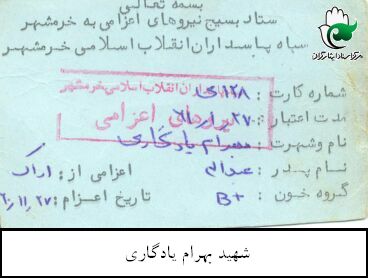 بسمه تعالی
ستاد بسیج نیروهای اعزامی به خرمشهر
سپاه پاسداران انقلاب اسلامی خرمشهر
شماره کارت : ۱۲۸ی
مدت اعتبار : ۲۷
نام وشهرت : بهرام یادگاری
نام پدر : عبداله اعزامی از : اراک
گروه خون : B+ تاریخ اعزام : ۶۰/۱۱/۲۷
پاسداران انقلاب اسلامی خرمشهر
نیروهای اعزامی
شهید بهرام یادگاری